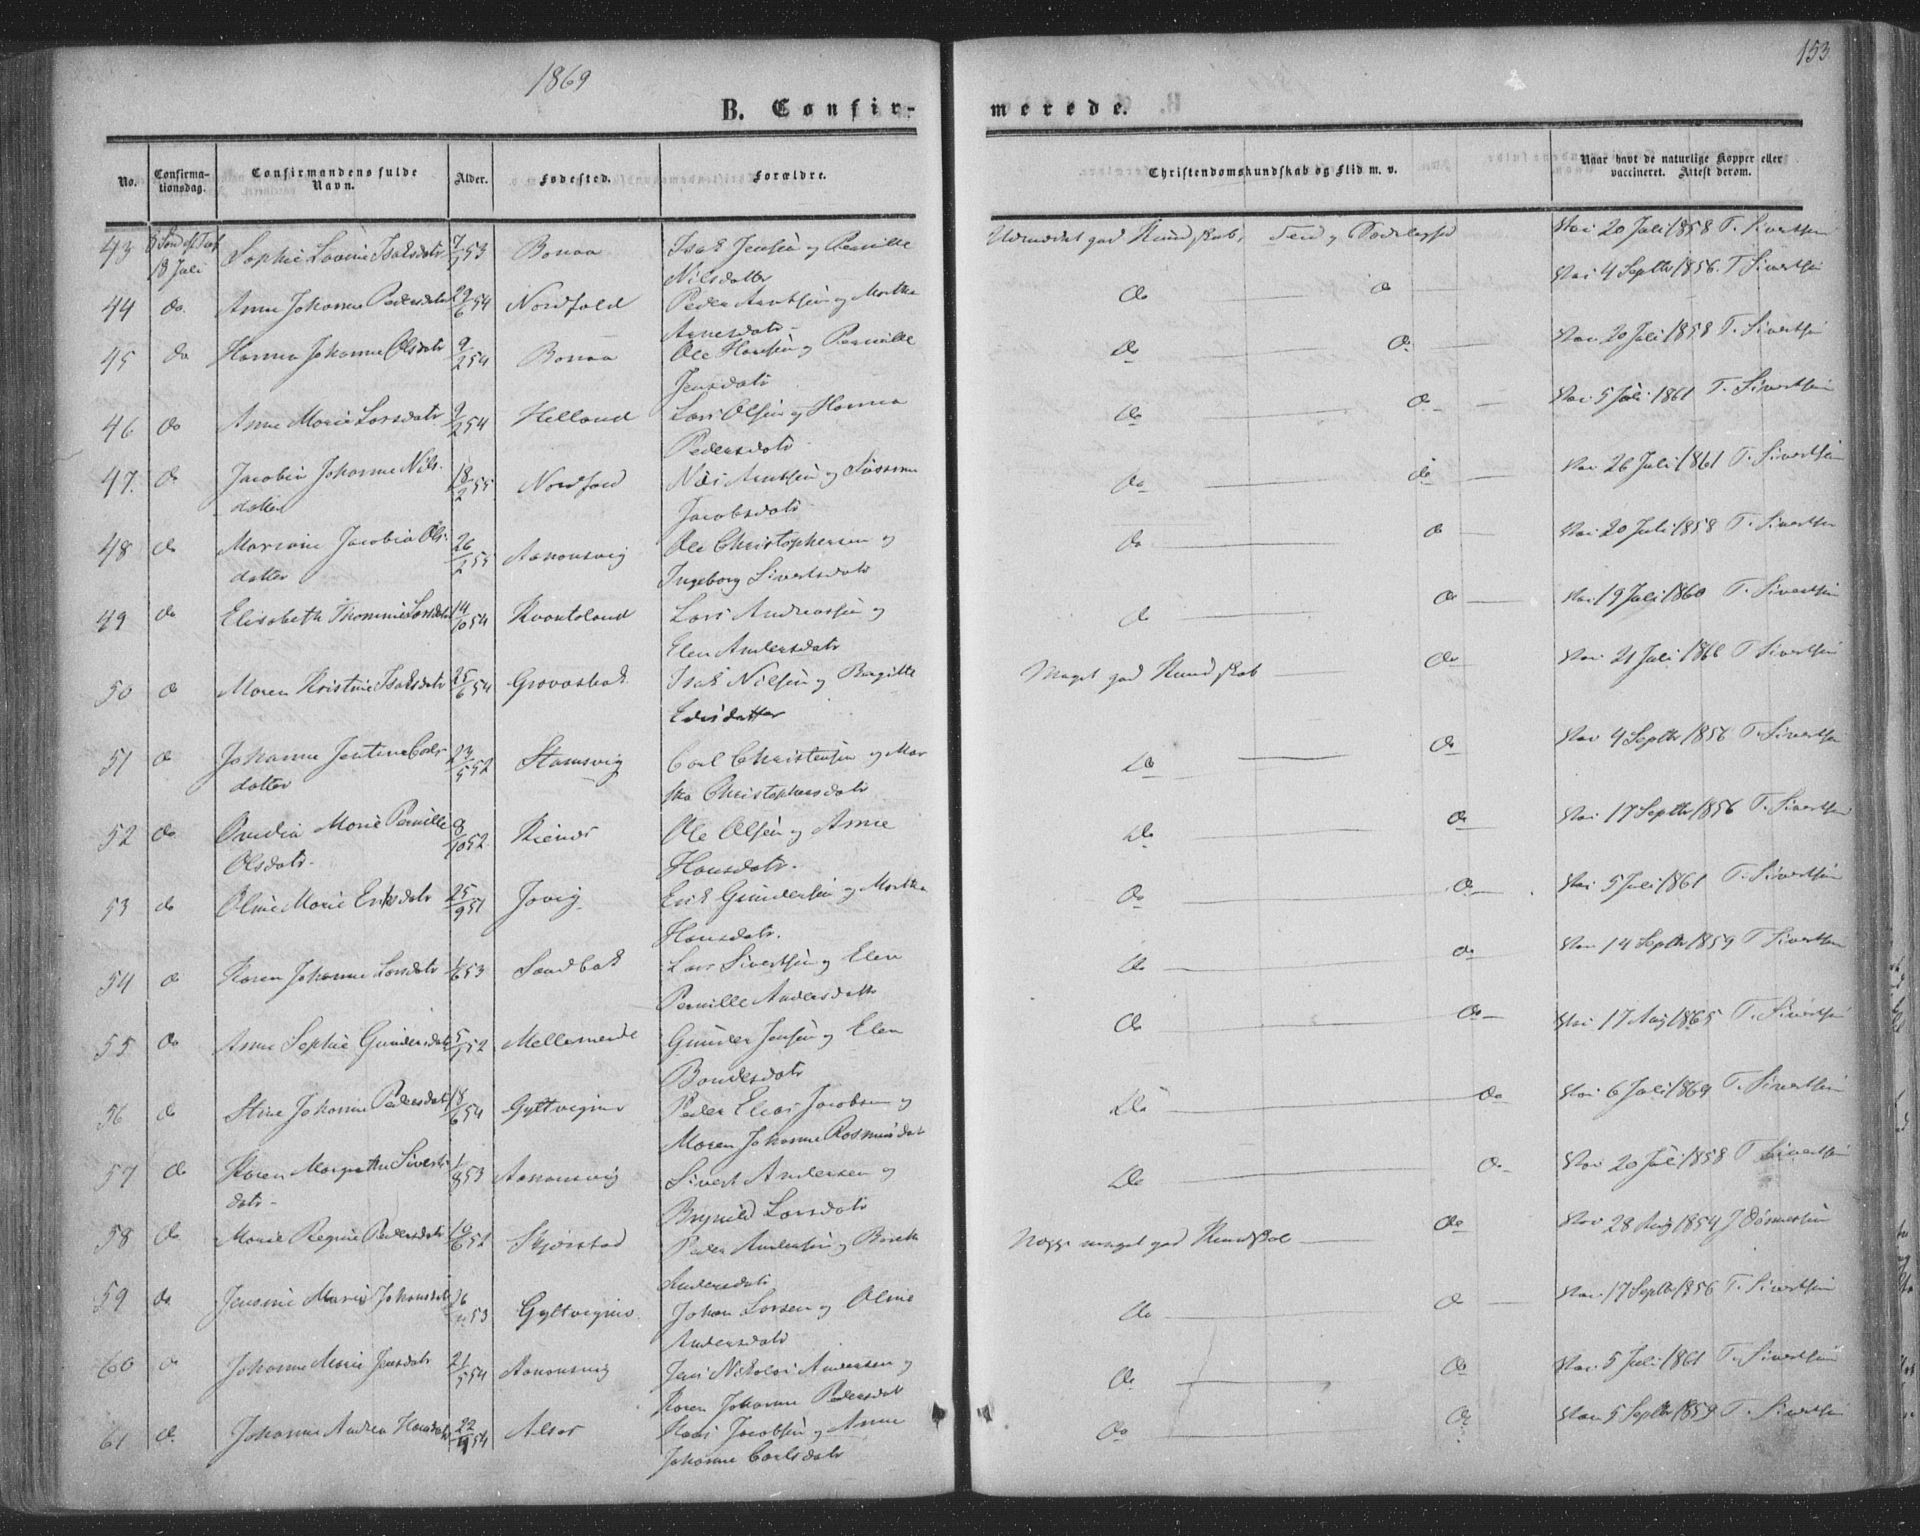 153
1869
B. Confir- merede.
No. Confirma-tionsdag. Confirmandens fulde Navn. Alder. Fødested. Forældre. Christendomskundskab og Flid m. v. Naar havt de naturlige Kopper eller vaccineret. Attest derom.
43 18 Juli Sophie Lovine Isaksdatr 53 Bonaa Isak Jensen og Pernille Nilsdatter Kundskab, 20 Juli 1858 T. Sivertsen
44 do Anne Johanne Pedersdatr 29/6 54 Nordfold Peder Arntsen og Martha Arnesdatr do do 4 Septbr 1856 T. Sivertsen
45 do Hanna Johanne Olsdatr 9/2 54 Bonaa Ole Hansen og Pernille Jensdatr do do 20 Juli 1858 T. Sivertsen
46 do Anne Marie Larsdatr 9/2 54 Helland Lars Olsen og Hanna Pedersdatr do do 5 Juli 1861 T. Sivertsen
47. do Jacobin Johanne Nils-datter 18/2 55 Nordfold Nils Arntsen og Jacobsdatr do do 26 Juli 1861 T. Sivertsen
48 do Jacobia Ols-datter 26/2 55 Aanonsvig Ole Christophersen og Ingeborg Sivertsdatr do do 20 Juli 1858 T. Sivertsen
49 do Elisabeth Larsdatr 14/10 54 Kvantoland Lars Andreassen og Elen Andersdatr do do 19 Juli 1860 T. Sivertsen
50 do Maren Kristine Isaksdatr 25/6 54 Isak Nilsen og Birgitte Meget god Kundskab do 21 Juli T. Sivertsen
51 do Johanne Jentine Carls-datter 23/5 52 Stamsvig Carl Christensen og Christophersdatr do do 4 Septbr 1856 T. Sivertsen
52 do Marie Pernille Olsdatr. 8/10 52 Ole Olsen og Anne Hansdatr. do do 17 Septbr 1856 T. Sivertsen
53 do Oline Marie Eriksdatr 25/9 51 Jovig Erik Gundersen og Martha Hansdatr. do do 5 Juli 1861 T. Sivertsen
54 do Karen Johanne Larsdatr 53 Sandbak Lars Sivertsen og Elen Pernille Andersdatr do do 14 Septbr 1859 T. Sivertsen
55 do Anne Sophie Gundersdatr 52 Gunder Jensen og Elen do do 17 Aug 1865 T. Sivertsen
56 do Stine Johanne Pedersdatr 18/6 54 Gyltvignes Peder Elias Jacobsen og Maren Johanne Rasmusdatr do do 6 Juli 1869 T. Sivertsen
57 do Karen Margrethe Siverts-datr. 1/8 53 Aanonsvig Sivert Andersen og Larsdatr do do 20 Juli 1858 T. Sivertsen
58 do Marie Regine Pedersdatr 52 Skjørstad Peder Andersen og Andersdatr meget god Kundskab do 28 Aug 1854
59 do Jensine Marie Johansdatr 26/11 53 Gyltvignes Johan Larsen og Oline Andersdatr do do 17 Septbr 1856 T. Sivertsen
60 do Johanne Marie Jensdatr 21/5 54 Aanonsvig Jens Nikolai Andersen og Karen Johanne Pedersdatr do do 5 Juli 1861 T. Sivertsen
61 do Johanne Andrea Hansdatr 54 Alsos Hans Jacobsen og Anne Johanne Carlsdatr do do 5 Septbr 1859 T. Sivertsen